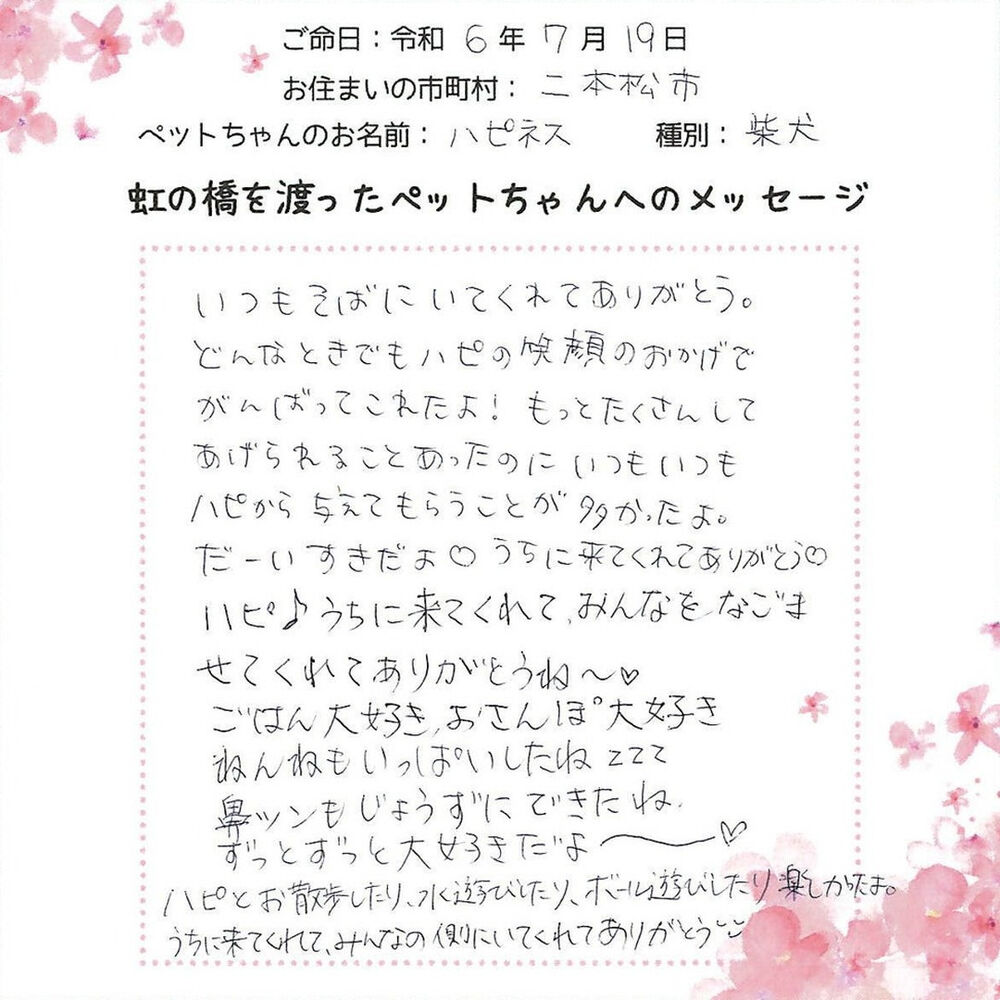 ご命日：令和 6 年 7 月 19 日
お住まいの市町村： 二本松市
ペットちゃんのお名前： ハピネス 種別： 柴犬
虹の橋を渡ったペットちゃんへのメッセージ
いつもそばにいてくれてありがとう。
どんなときでもハピの笑顔のおかげで
がんばってこれたよ！もっとたくさんして
あげられることあったのにいつもいつも
ハピから与えてもらうことが多かったよ。
だーいすきだよ♡うちに来てくれてありがとう♡
ハピ♪うちに来てくれて、みんなをなごま
せてくれてありがとうね〜♡
ごはん大好き、おさんぽ大好き
ねんねもいっぱいしたねzzz
鼻ツンもじょうずにできたね、
ずっとずっと大好きだよ〜♡
ハピとお散歩したり、水遊びしたり、ボール遊びしたり楽しかったよ。
うちに来てくれて、みんなの側にいてくれてありがとう